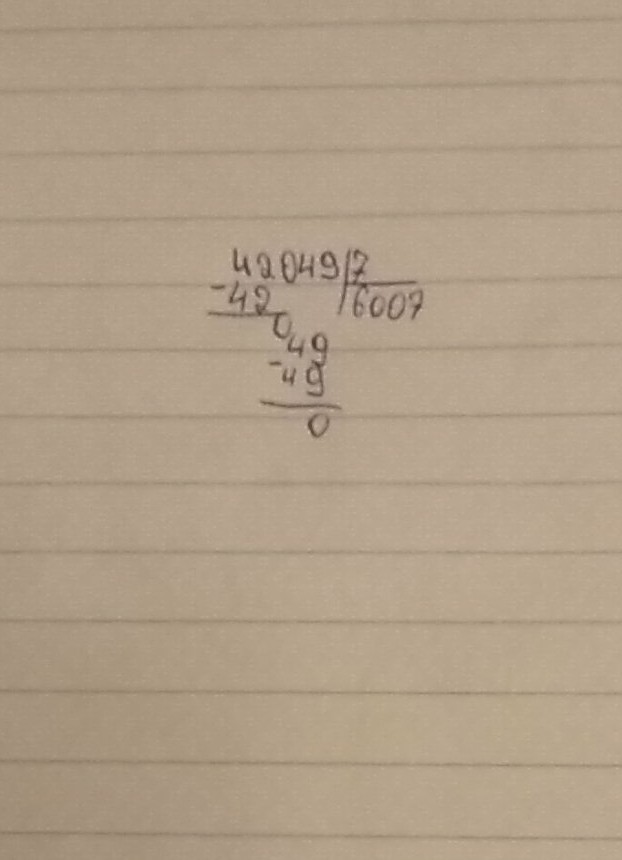 42049 7
-42 6007
0
49
-49
0